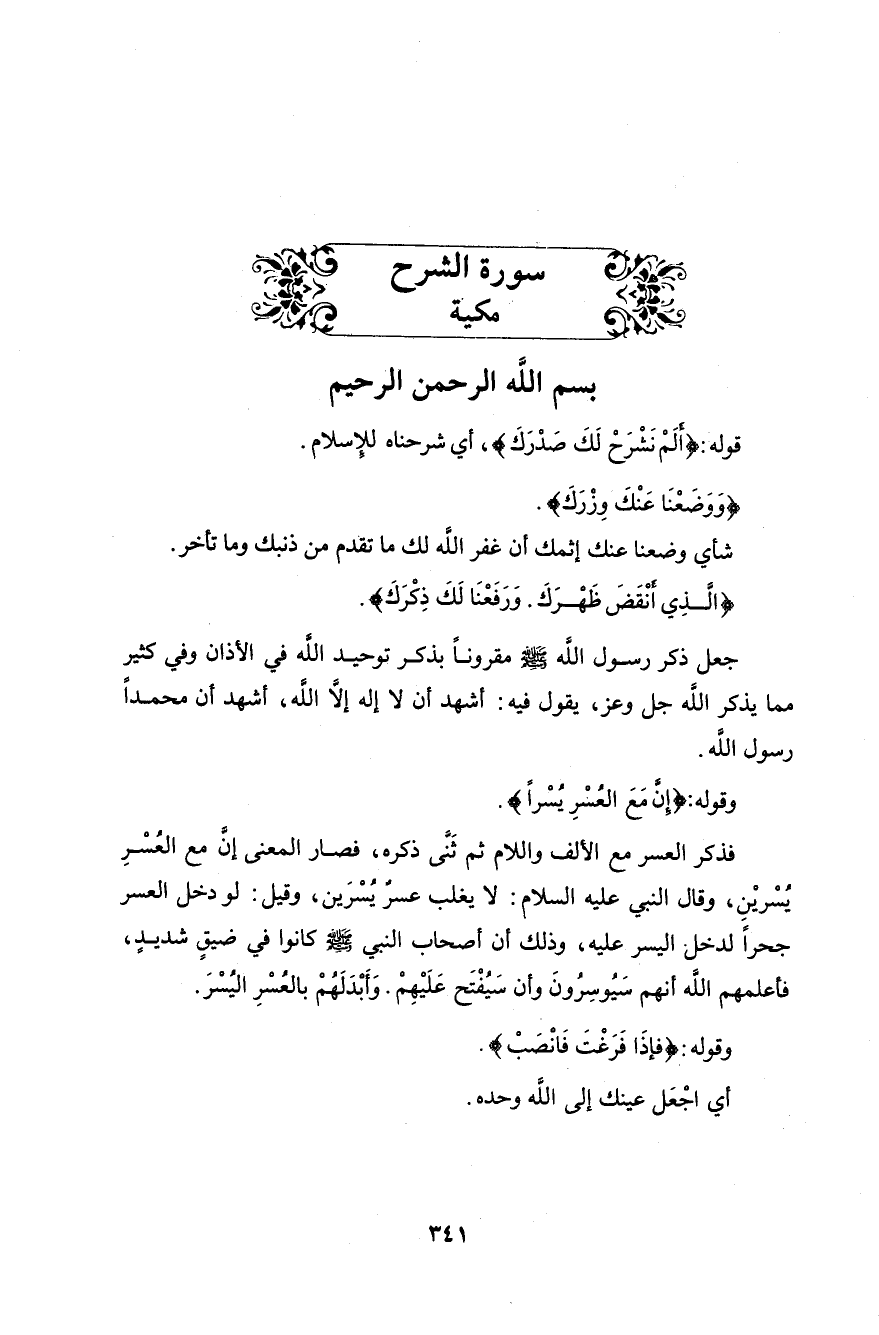 سورة الشرح
مكية
بسم اللَّه الرحمن الرحيم
قوله: ﴿أَلَمْ نَشْرَحْ لَكَ صَدْرَكَ﴾، أي شرحناه للإِسلام.
﴿وَوَضَعْنَا عَنْكَ وِزْرَكَ﴾.
شأي وضعنا عنك إثمك أن غفر اللَّه لك ما تقدم من ذنبك وما تأخر.
﴿الَّـذِي أَنْقَضَ ظَهْـرَكَ. وَرَفَعْنَا لَكَ ذِكْرَكَ﴾.
جعل ذكر رسول اللَّه ﷺ مقروناً بذكر توحيد اللَّه في الأذان وفي كثير
مما يذكر اللَّه جل وعز، يقول فيه: أشهد أن لا إله إلَّا اللَّه، أشهد أن محمداً
رسول اللَّه.
وقوله: ﴿إِنَّ مَعَ العُسْرِ يُسْراً﴾.
فذكر العسر مع الألف واللام ثم ثَنَّى ذكره، فصار المعنى إنَّ مع العُسْرِ
يُسْريْنِ، وقال النبي عليه السلام: لا يغلب عسرٌ يُسْرَين، وقيل: لو دخل العسر
جحراً لدخل اليسر عليه، وذلك أن أصحاب النبي ﷺ كانوا في ضيقٍ شديدٍ،
فأعلمهم اللَّه أنهم سَيُوسِرُونَ وأن سَيُفْتَح عَلَيْهِمْ. وَأَبْدَلَهُمْ بالعُسْرِ اليُسْرَ.
وقوله: ﴿فإذَا فَرَغْتَ فَانْصَبْ﴾.
أي اجْعَل عينك إلى اللَّه وحده.
٣٤١